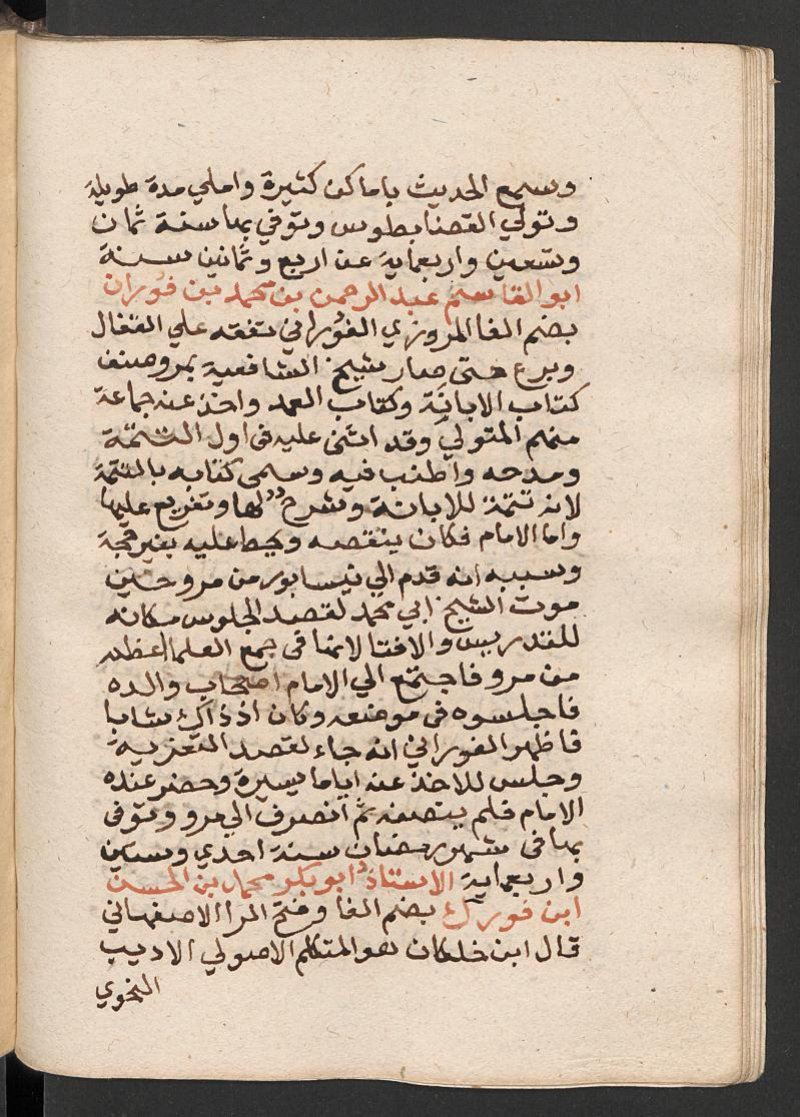 وسمع الحديث باماكن كثيرة واملي مدة طويلة
وتولي القضا بطوس وتوفي بها سنة ثمان
وستعين واربعماية عن اربع وثمانين سنة
ابو القاسم عبد الرحمن بن محمد بن فوران
بضم الفا المروزي الفوراني تفقه علي القفال
وبرع حتى صار شيخ الشافعية بمرو صنف
كتاب الابانة وكتاب العمد واخذ عنه جماعة
منهم المتولي وقد اثنى عليه فى اول التتمة
ومدحه واطنب فيه وسمى كتابه بالتتمة
لانه تتمة للابانة وشرح لها وتفريع عليها
واما الامام فكان ينقصه ويحط عليه بغير حجة
وسببه انه قدم الي نيسابور من مرو حين
موت الشيخ ابي محمد لقصد الجلوس مكانه
للتدريس والافتا لانها فى جمع العلما العظم
من مرو فاجتمع الي الامام اصحاب والده
فاجلسوه فى موضعه وكان اذ ذاك شابا
فاظهر الفوراني انه جاء لقصد التعزية
وجلس للاخذ عنه اياما يسيرة وحضر عنده
الامام فلم ينصفه ثم انصرف الي مرو وتوفى
بها فى شهر رمضان سنة احدي وستين
واربعماية الاستاذ ابو بكر محمد بن الحسن
ابن فورك بضم الفا وفتح الرا الاصفهاني
قال ابن خلكان هو المتكلم الاصولي الاديب
النحوي